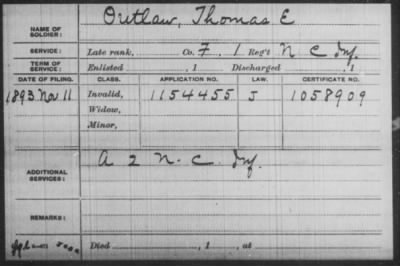 NAME OF SOLDIER: Outlaw, Thomas E
SERVICE: Late rank, Co. F, 1 Reg't N C Inf.
TERM OF SERVICE: Enlisted , 1 Discharged , 1
DATE OF FILING. CLASS. APPLICATION NO. LAW. CERTIFICATE NO.
1893 Nov 11 Invalid, 1154455 J 1058909
Widow,
Minor,
ADDITIONAL SERVICES: A 2 N. C. Inf.
REMARKS:
Died , 1 , at